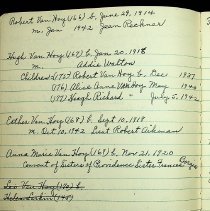 Robert Van Hoy (166) b. June 29, 1914
m. Jan 1942 Jean Reckner
Hugh Van Hoy (167) b. Jan 20, 1918
m. Addie Walton
Children (175) Robert Van Hoy b. Dec 1937
(176) Alice Anna Van Hoy May 1940
(177) Hough Richard " July 5, 1942
Esther Van Hoy (168) b. Sept 10, 1918
m. Oct 10, 1942 Lieut Robert Aikman
Anna Marie Van Hoy b. Nov. 21, 1920
Convent of Sisters of Providence Sister Francis George
Leo Van Hoy (146) b.
Helen (148)